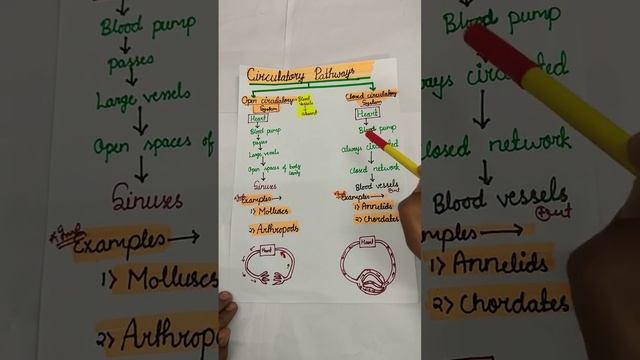 Circulatory Pathways
Open circulatory
system
Heart
Blood pump
passes
Large vessels
Open spaces of body
cavity
Sinuses
* Imp
Examples →
1) Molluscs
2) Arthropods
Heart
Blood
vessels
absent
Closed circulatory
system
Heart
Blood pump
always circulated
Closed network
Blood vessels
* Imp
Examples →
1) Annelids
2) Chordates
Heart
Blood pump
passes
Large vessels
Open spaces of
Sinuses
* Imp
Examples →
1) Molluscs
2) Arthropods
Blood pump
ays circulated
losed network
Blood vessels
amples →
1) Annelids
2) Chordates